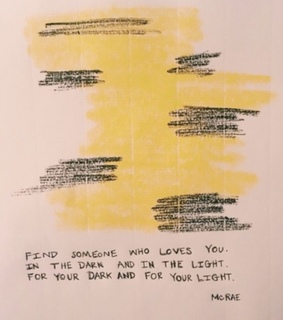 FIND SOMEONE WHO LOVES YOU.
IN THE DARK AND IN THE LIGHT.
FOR YOUR DARK AND FOR YOUR LIGHT.
MORAE